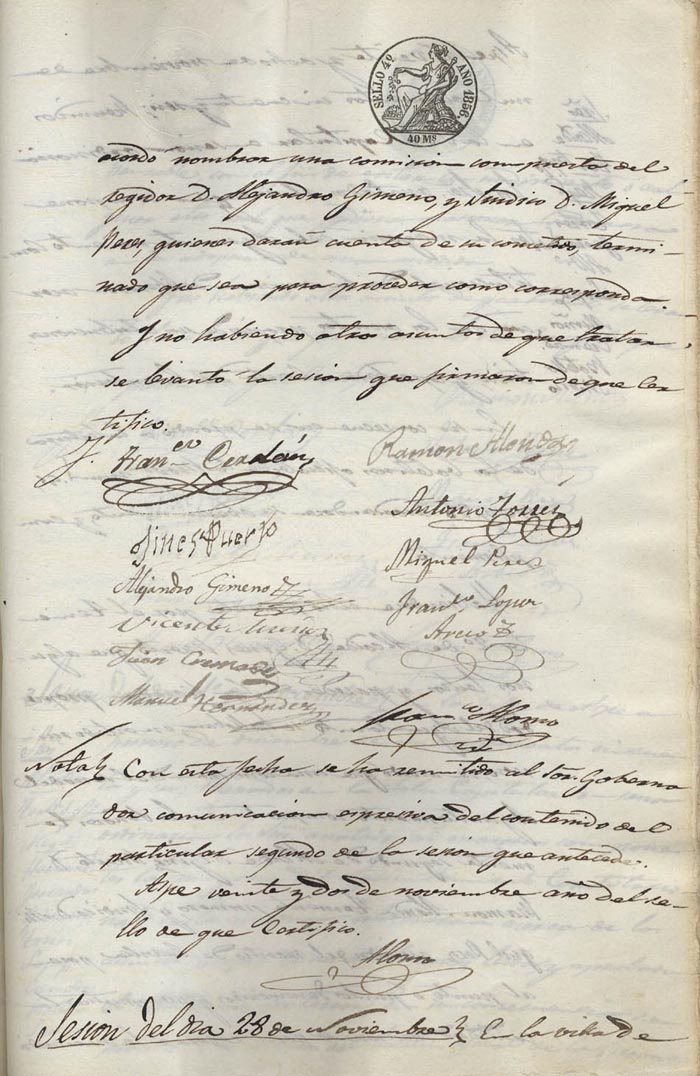 SELLO 4º AÑO 1856.
40 Ms
acordó nombrar una comision compuesta del
regidor D. Alejandro Gimeno, y Sindico D. Miguel
Peres, quienes darán cuenta de su cometido, termi-
nado que sea para proceder como corresponda.
Y no habiendo otros asuntos de que tratar,
se levantó la sesion que firmaron de que cer-
tifico.
Fran.co Cerdán
Ramon Alonda
Antonio Torres
Gines Puerto
Miguel Peres
Alejandro Gimeno
Fran.co Lopez
Vicente
Arevo
Juan Cremades
Manuel Hernández
Fran.co Alonso
Nota Con esta fecha se ha remitido al Sor. Goberna
dor comunicacion espresiva del contenido del
particular segundo de la sesion que antecede.
Aspe veinte y dos de noviembre año del se-
llo de que certifico.
Alonso
Sesion del dia 28 de Noviembre En la villa de